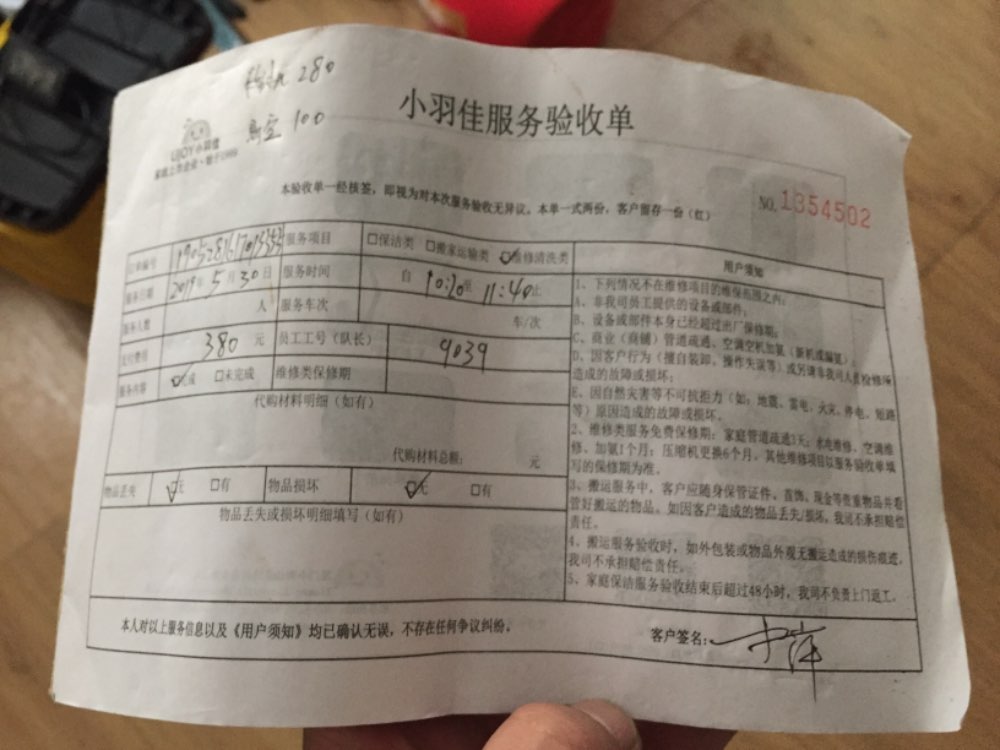 280
100
小羽佳服务验收单
UJOY小羽佳
家政上市企业·始于1999
本验收单一经核签，即视为对本次服务验收无异议。本单一式两份，客户留存一份（红）
NO. 1354502
订单编号
服务项目 □保洁类 □搬家运输类 ☑维修清洗类
服务日期 2019年5月30日 服务时间 自 10:20至 11:40止
服务人数 人 服务车次 车/次
支付费用 380 元 员工工号（队长） 9039
服务内容 ☑完成 □未完成 维修类保修期
代购材料明细（如有）
代购材料总额： 元
物品丢失 ☑无 □有 物品损坏 ☑无 □有
物品丢失或损坏明细填写（如有）
用户须知
1、下列情况不在维修项目的维保范围之内：
A、非我司员工提供的设备或部件；
B、设备或部件本身已经超过出厂保修期；
C、商业（商铺）管道疏通、空调空机加氨（新机或漏氨）；
D、因客户行为（擅自装卸、操作失误等）或另请非我司人员检修所
造成的故障或损坏；
E、因自然灾害等不可抗拒力（如：地震、雷电、火灾、停电、短路
等）原因造成的故障或损坏。
2、维修类服务免费保修期：家庭管道疏通3天；水电维修、空调维
修、加氨1个月；压缩机更换6个月。其他维修项目以服务验收单填
写的保修期为准。
3、搬运服务中，客户应随身保管证件、首饰、现金等贵重物品并看
管好搬运的物品。如因客户造成的物品丢失/损坏，我司不承担赔偿
责任。
4、搬运服务验收时，如外包装或物品外观无搬运造成的损伤痕迹，
我司不承担赔偿责任。
5、家庭保洁服务验收结束后超过48小时，我司不负责上门返工。
本人对以上服务信息以及《用户须知》均已确认无误，不存在任何争议纠纷。
客户签名：